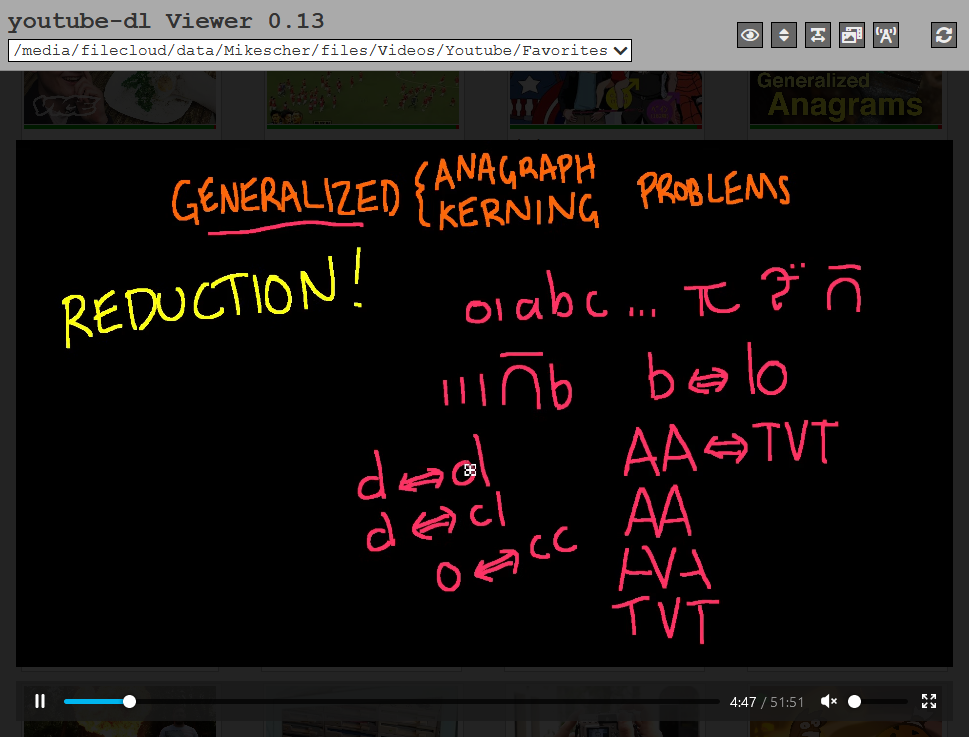 youtube-dl Viewer 0.13
/media/filecloud/data/Mikescher/files/Videos/Youtube/Favorites
Generalized
Anagrams
GENERALIZED { ANAGRAPH
KERNING PROBLEMS
REDUCTION!
01abc... π ?̈ n̅
111n̅b b ⇔ lo
d ⇔ ol AA ⇔ TVT
d ⇔ cl AA
o ⇔ cc AVA
TVT
4:47 / 51:51